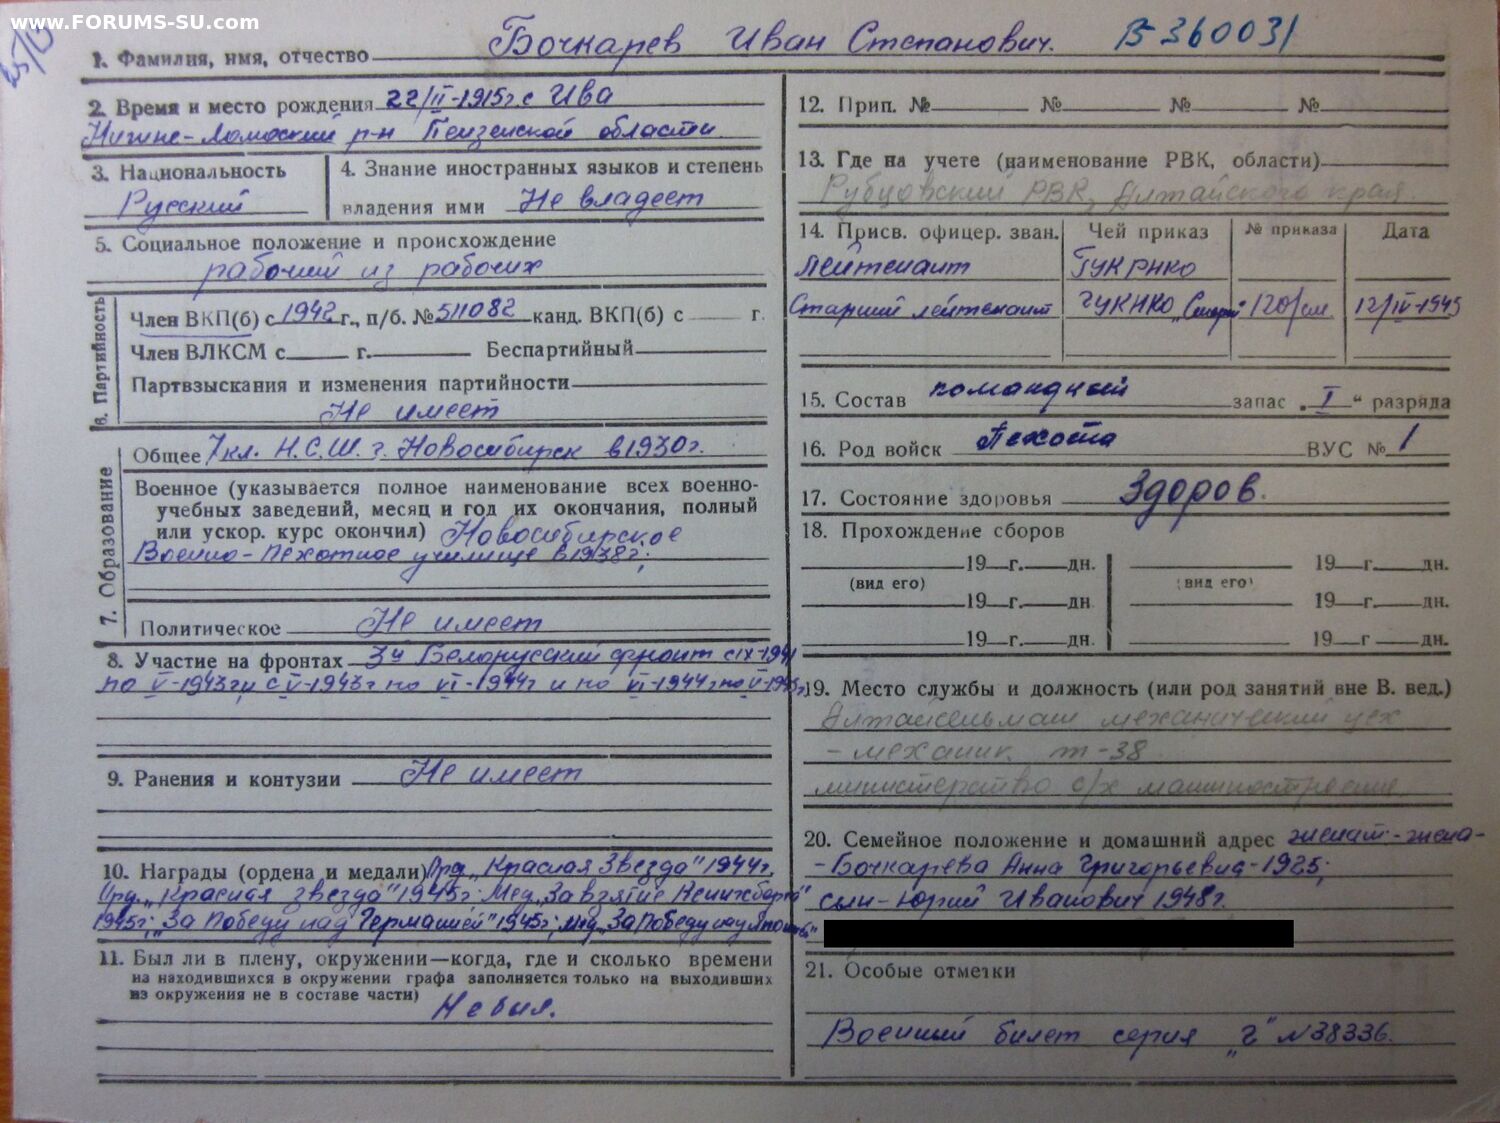 www.FORUMS-SU.com
1. Фамилия, имя, отчество Бочкарев Иван Степанович. В 360031
2. Время и место рождения 22/II-1915г. с Ива
Нижне-Ломовский р-н Пензенской области
3. Национальность Русский
4. Знание иностранных языков и степень
владения ими Не владеет
5. Социальное положение и происхождение
рабочий из рабочих
6. Партийность
Член ВКП(б) с 1942 г., п/б. № 511082 канд. ВКП(б) с г.
Член ВЛКСМ с г. Беспартийный
Партвзыскания и изменения партийности
Не имеет
7. Образование
Общее 7 кл. Н.С.Ш. г. Новосибирск в 1930г.
Военное (указывается полное наименование всех военно-
учебных заведений, месяц и год их окончания, полный
или ускор. курс окончил) Новосибирское
Военно-Пехотное училище в 1938г;
Политическое Не имеет
8. Участие на фронтах 3й Белорусский фронт с IX-1941
по V-1943г и с V-1943г по VI-1944г и по VI-1944г по V-1945г
9. Ранения и контузии Не имеет
10. Награды (ордена и медали) Орд. „Красная Звезда" 1944г.
Орд. „Красная звезда" 1945г. Мед. „За взятие Кенигсберга"
1945г; „За Победу над Германией" 1945г; Мед „За Победу над Японией"
11. Был ли в плену, окружении—когда, где и сколько времени
на находившихся в окружении графа заполняется только на выходивших
из окружения не в составе части)
Не был.
12. Прип. № № № №
13. Где на учете (наименование РВК, области)
Рубцовский РВК, Алтайского края.
14. Присв. офицер. зван. Чей приказ № приказа Дата
Лейтенант ГУКРККО
Старший лейтенант ГУКНКО „Смерш" 120/см 12/IV-1945
15. Состав командный запас „I" разряда
16. Род войск Пехота ВУС № 1
17. Состояние здоровья Здоров.
18. Прохождение сборов
19 г. дн. 19 г. дн.
(вид его) (вид его)
19 г. дн. 19 г. дн.
19 г. дн. 19 г дн.
19. Место службы и должность (или род занятий вне В. вед.)
Алтайсельмаш механический цех
- механик. т-38
министерство с/х машиностроения
20. Семейное положение и домашний адрес женат-жена-
-Бочкарева Анна Григорьевна-1925;
сын-Юрий Иванович 1948г.
21. Особые отметки
Военный билет серия „Г" № 38336.